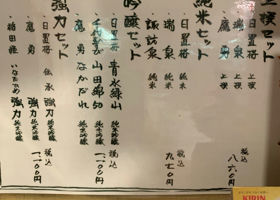 上撰セット
日置桜 上撰
瑞泉 上撰
鷹勇 上撰
税込 八六〇円
純米セット
日置桜 純米
瑞泉 純米
諏訪泉 純米
税込 九七〇円
吟醸セット
日置桜 青水緑山 純米吟醸
千代むすび 山田錦50 純米吟醸
鷹勇 なかだれ 純米吟醸
税込 一、一〇〇円
強力セット
日置桜 伝承強力 純米吟醸
鷹勇 強力 純米吟醸
稲田姫 いなたひめ強力 純米吟醸
税込 一、一〇〇円
KIRIN